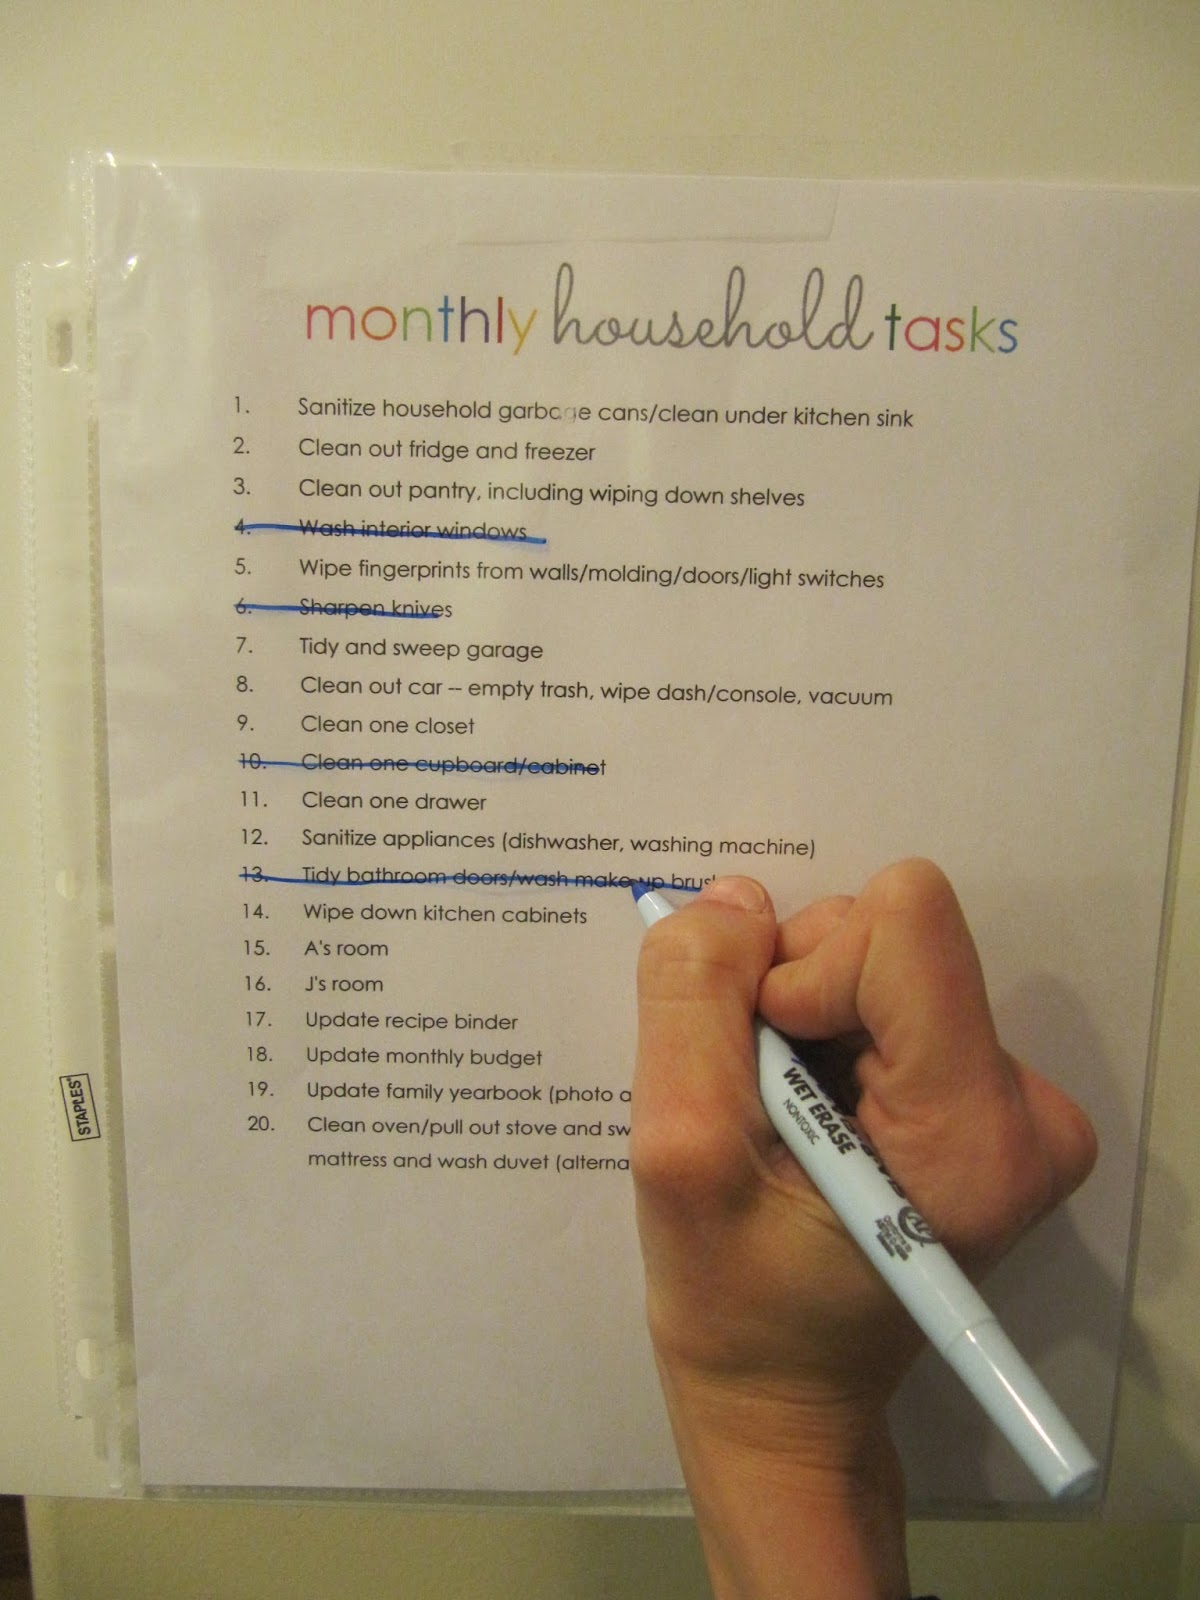 monthly household tasks
1. Sanitize household garbage cans/clean under kitchen sink
2. Clean out fridge and freezer
3. Clean out pantry, including wiping down shelves
4. Wash interior windows
5. Wipe fingerprints from walls/molding/doors/light switches
6. Sharpen knives
7. Tidy and sweep garage
8. Clean out car -- empty trash, wipe dash/console, vacuum
9. Clean one closet
10. Clean one cupboard/cabinet
11. Clean one drawer
12. Sanitize appliances (dishwasher, washing machine)
13. Tidy bathroom doors/wash make-up
14. Wipe down kitchen cabinets
15. A's room
16. J's room
17. Update recipe binder
18. Update monthly budget
19. Update family yearbook (photo
20. Clean oven/pull out stove and
mattress and wash duvet
STAPLES
WET ERASE
NONTOXIC
AP